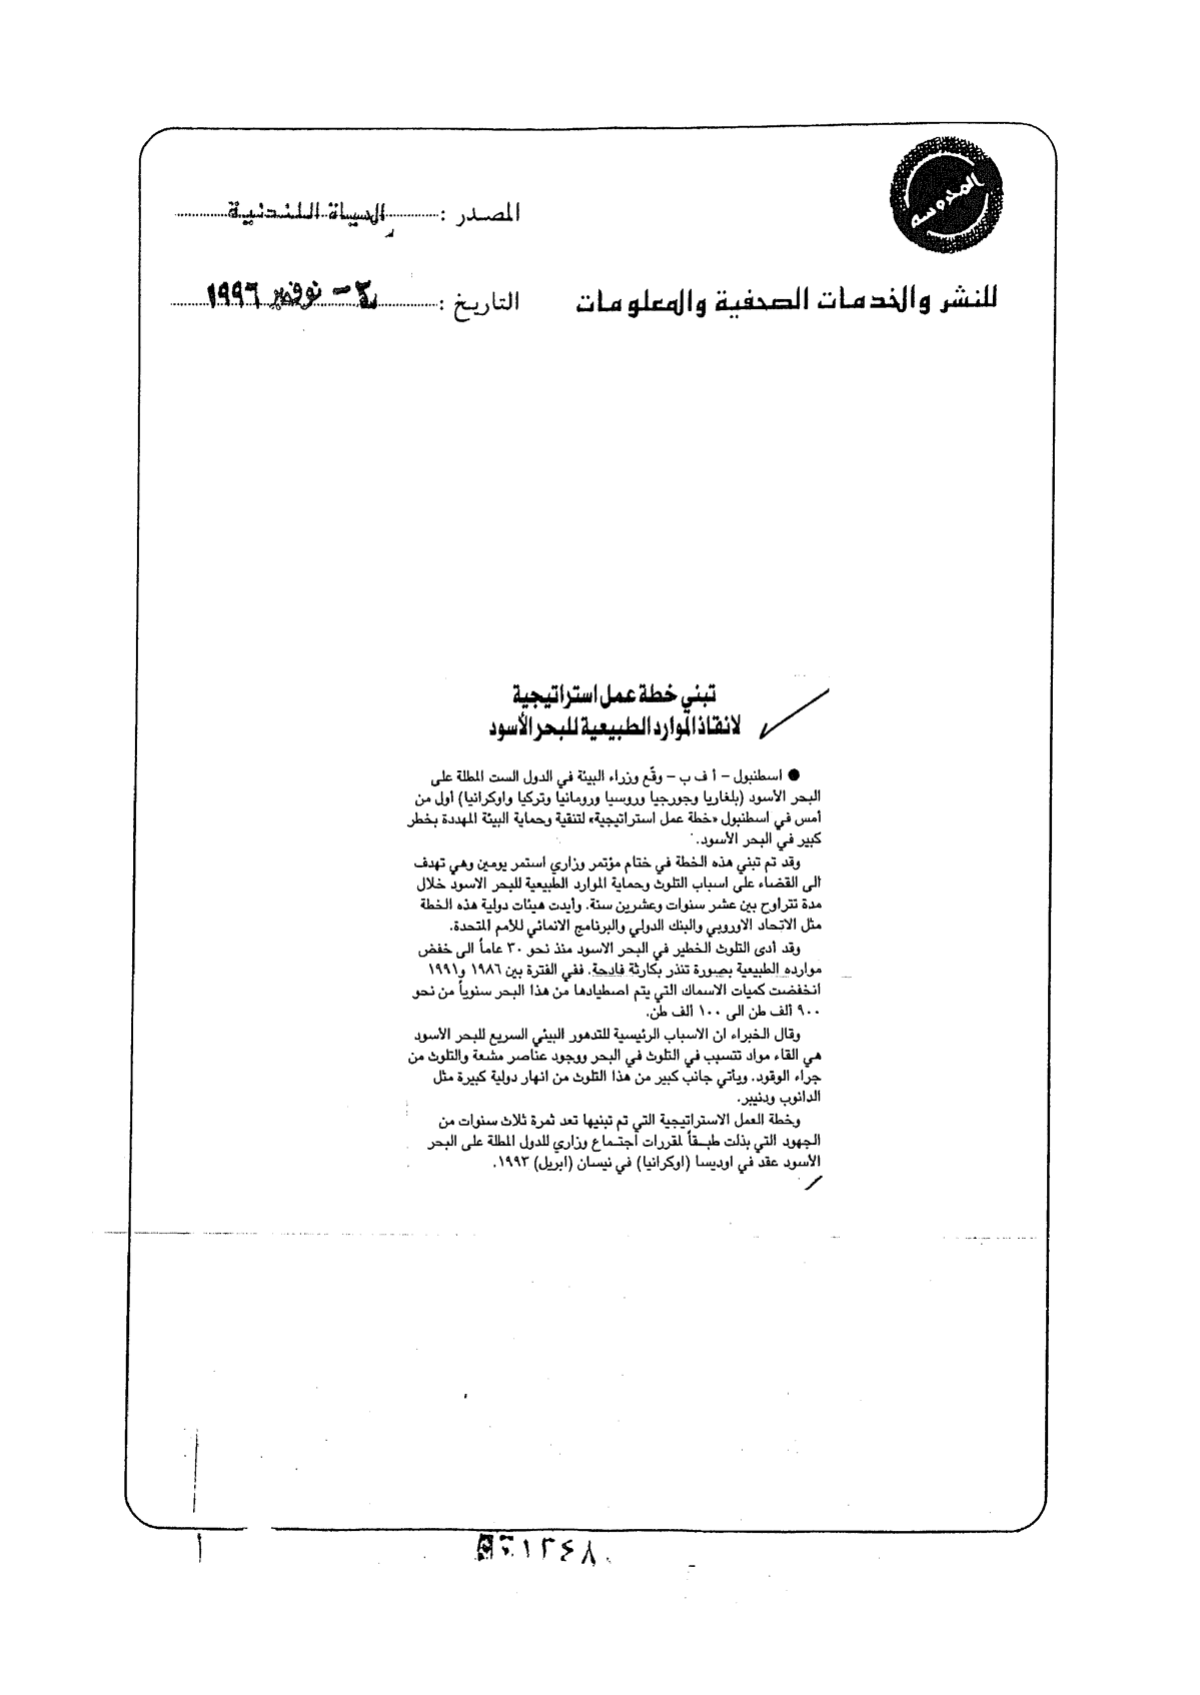 المحروسه
المصدر : الحياة اللندنية
للنشر والخدمات الصحفية والمعلومات
التاريخ : نوفمبر ١٩٩٦
تبني خطة عمل استراتيجية
لانقاذ الموارد الطبيعية للبحر الأسود
● اسطنبول - أ ف ب - وقّع وزراء البيئة في الدول الست المطلة على
البحر الأسود (بلغاريا وجورجيا وروسيا ورومانيا وتركيا واوكرانيا) أول من
أمس في اسطنبول «خطة عمل استراتيجية» لتنقية وحماية البيئة المهددة بخطر
كبير في البحر الأسود.
وقد تم تبني هذه الخطة في ختام مؤتمر وزاري استمر يومين وهي تهدف
الى القضاء على اسباب التلوث وحماية الموارد الطبيعية للبحر الاسود خلال
مدة تتراوح بين عشر سنوات وعشرين سنة. وأيدت هيئات دولية هذه الخطة
مثل الاتحاد الاوروبي والبنك الدولي والبرنامج الانمائي للأمم المتحدة.
وقد أدى التلوث الخطير في البحر الاسود منذ نحو ٣٠ عاماً الى خفض
موارده الطبيعية بصورة تنذر بكارثة فادحة. ففي الفترة بين ١٩٨٦ و١٩٩١
انخفضت كميات الاسماك التي يتم اصطيادها من هذا البحر سنوياً من نحو
٩٠٠ ألف طن الى ١٠٠ ألف طن.
وقال الخبراء ان الاسباب الرئيسية للتدهور البيئي السريع للبحر الأسود
هي القاء مواد تتسبب في التلوث في البحر ووجود عناصر مشعة والتلوث من
جراء الوقود. ويأتي جانب كبير من هذا التلوث من انهار دولية كبيرة مثل
الدانوب ودنيبر.
وخطة العمل الاستراتيجية التي تم تبنيها تعد ثمرة ثلاث سنوات من
الجهود التي بذلت طبقاً لمقررات اجتماع وزاري للدول المطلة على البحر
الأسود عقد في اوديسا (اوكرانيا) في نيسان (ابريل) ١٩٩٣.